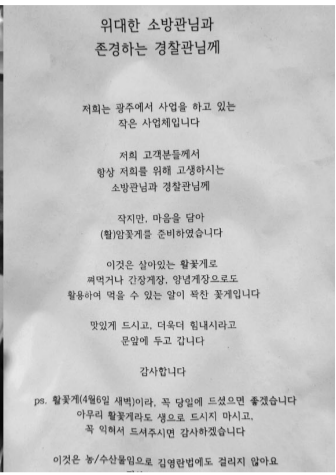 위대한 소방관님과
존경하는 경찰관님께
저희는 광주에서 사업을 하고 있는
작은 사업체입니다
저희 고객분들께서
항상 저희를 위해 고생하시는
소방관님과 경찰관님께
작지만, 마음을 담아
(활)암꽃게를 준비하였습니다
이것은 살아있는 활꽃게로
쪄먹거나 간장게장, 양념게장으로도
활용하여 먹을 수 있는 알이 꽉찬 꽃게입니다
맛있게 드시고, 더욱더 힘내시라고
문앞에 두고 갑니다
감사합니다
ps. 활꽃게(4월6일 새벽)이라, 꼭 당일에 드셨으면 좋겠습니다
아무리 활꽃게라도 생으로 드시지 마시고,
꼭 익혀서 드셔주시면 감사하겠습니다
이것은 농/수산물임으로 김영란법에도 걸리지 않아요